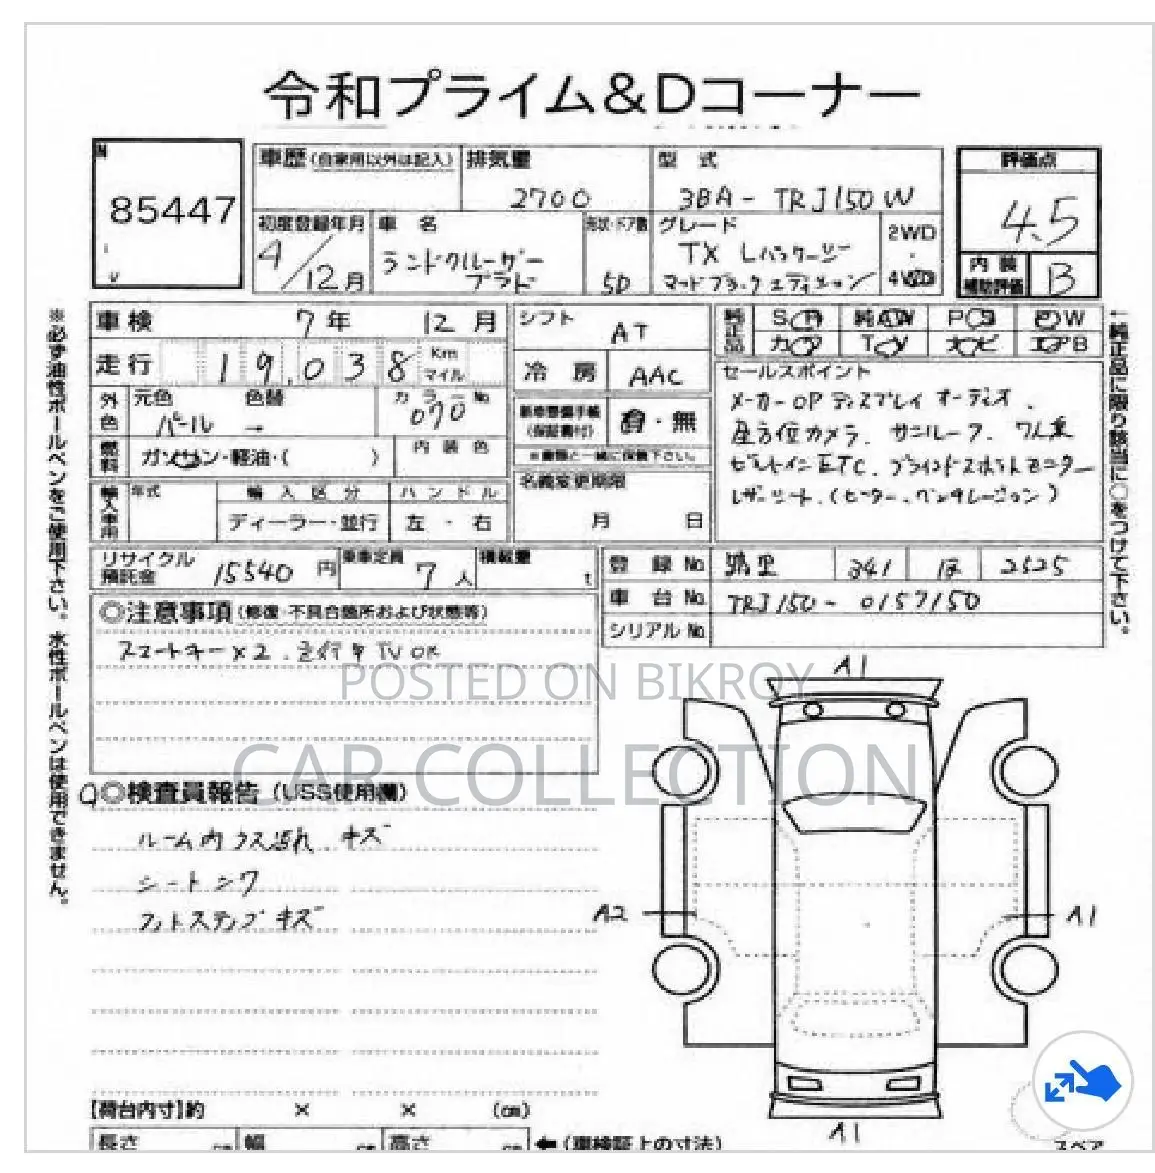 令和プライム&Dコーナー
85447
車歴(自家用以外は記入)
排気量
2700
型式
3BA-TRJ150W
評価点
4.5
内装
補助評価
B
初度登録年月
4/12月
車名
ランドクルーザー
プラド
形状・ドア数
5D
グレード
TX Lパッケージ
マットブラックエディション
2WD
・
4WD
車検 7年 12月
走行 19,038 Km
マイル
外色
元色
パール
色替
→
カラーNo
070
燃料
ガソリン・軽油・( )
内装色
輸入車用
年式
輸入区分
ディーラー・並行
ハンドル
左・右
シフト
AT
冷房
AAC
新車整備手帳
(保証書付)
有・無
※書類と一緒に保管下さい。
名義変更期限
月 日
純正品
SR 純AW PS PW
カワ TV ナビ エアB
セールスポイント
メーカーOPディスプレイオーディオ、
サンルーフ、7人乗
ビルトインETC、ブラインドスポットモニター
レザーシート、(ヒーター、ベンチレーション)
リサイクル
預託金
15540円
乗車定員
7人
積載量
t
登録No.
341
2525
車台No.
TRJ150-0157150
シリアルNo.
◎注意事項(修復・不具合箇所および状態等)
スマートキー×2、走行中TV OK
POSTED ON BIKROY
CAR COLLECTION
◎検査員報告(USS使用欄)
ルーム内ウス汚れ、キズ
シートシワ
フットステップキズ
A1
A2
A1
A1
【荷台内寸】約 × × (cm)
長さ
幅
高さ
←(車検証上の寸法)
スペア
※必ず油性ボールペンをご使用下さい。水性ボールペンは使用できません。
↑純正品に限り該当に○をつけて下さい。